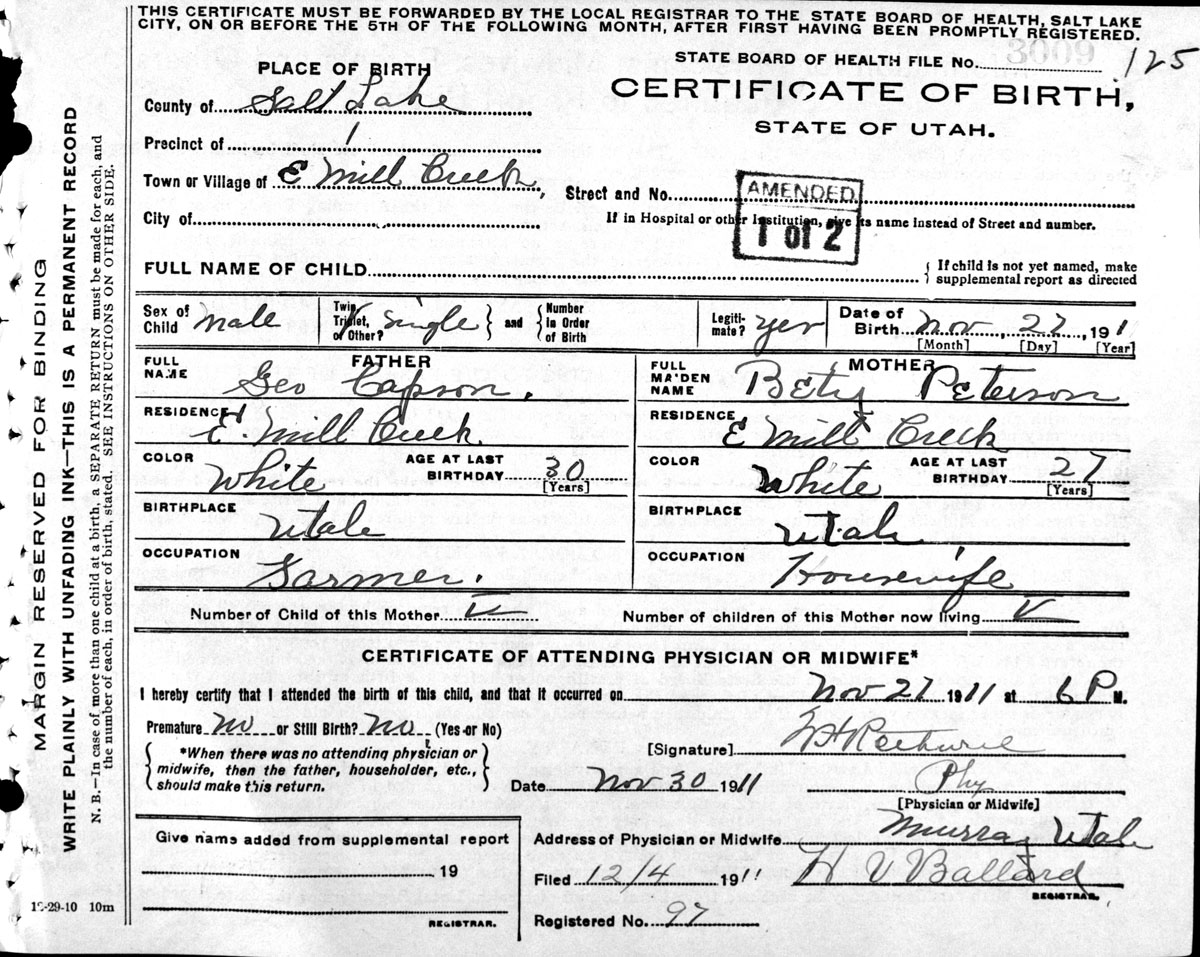 THIS CERTIFICATE MUST BE FORWARDED BY THE LOCAL REGISTRAR TO THE STATE BOARD OF HEALTH, SALT LAKE
CITY, ON OR BEFORE THE 5TH OF THE FOLLOWING MONTH, AFTER FIRST HAVING BEEN PROMPTLY REGISTERED.
STATE BOARD OF HEALTH FILE No. 125
PLACE OF BIRTH
CERTIFICATE OF BIRTH,
STATE OF UTAH.
County of Salt Lake
Precinct of 1
Town or Village of E Mill Creek,
Street and No.
AMENDED
1 of 2
City of
If in Hospital or other Institution, give its name instead of Street and number.
FULL NAME OF CHILD
{ If child is not yet named, make
supplemental report as directed
Sex of Child Male
Twin, Triplet, or Other? single } and { Number in Order of Birth
Legitimate? yes
Date of Birth Nov, 27, 1911
[Month] [Day] [Year]
FATHER
FULL NAME Geo Capson.
RESIDENCE E. Mill Creek.
COLOR White
AGE AT LAST BIRTHDAY 30
[Years]
BIRTHPLACE Utah
OCCUPATION Farmer.
MOTHER
FULL MAIDEN NAME Betsy Peterson
RESIDENCE E Mill Creek
COLOR White
AGE AT LAST BIRTHDAY 27
[Years]
BIRTHPLACE Utah
OCCUPATION Housewife
Number of Child of this Mother V
Number of children of this Mother now living V
CERTIFICATE OF ATTENDING PHYSICIAN OR MIDWIFE*
I hereby certify that I attended the birth of this child, and that it occurred on Nov 27 1911 at 6 P M.
Premature No or Still Birth? No (Yes or No)
{ *When there was no attending physician or
midwife, then the father, householder, etc.,
should make this return. }
[Signature]
Date Nov 30 1911
Phy
[Physician or Midwife]
Give name added from supplemental report
19
REGISTRAR.
Address of Physician or Midwife Murray Utah
Filed 12/4 1911 H V Ballard
REGISTRAR.
Registered No. 97
10-29-10 10m
MARGIN RESERVED FOR BINDING
WRITE PLAINLY WITH UNFADING INK—THIS IS A PERMANENT RECORD
N. B.—In case of more than one child at a birth, a SEPARATE RETURN must be made for each, and
the number of each, in order of birth, stated. SEE INSTRUCTIONS ON OTHER SIDE.